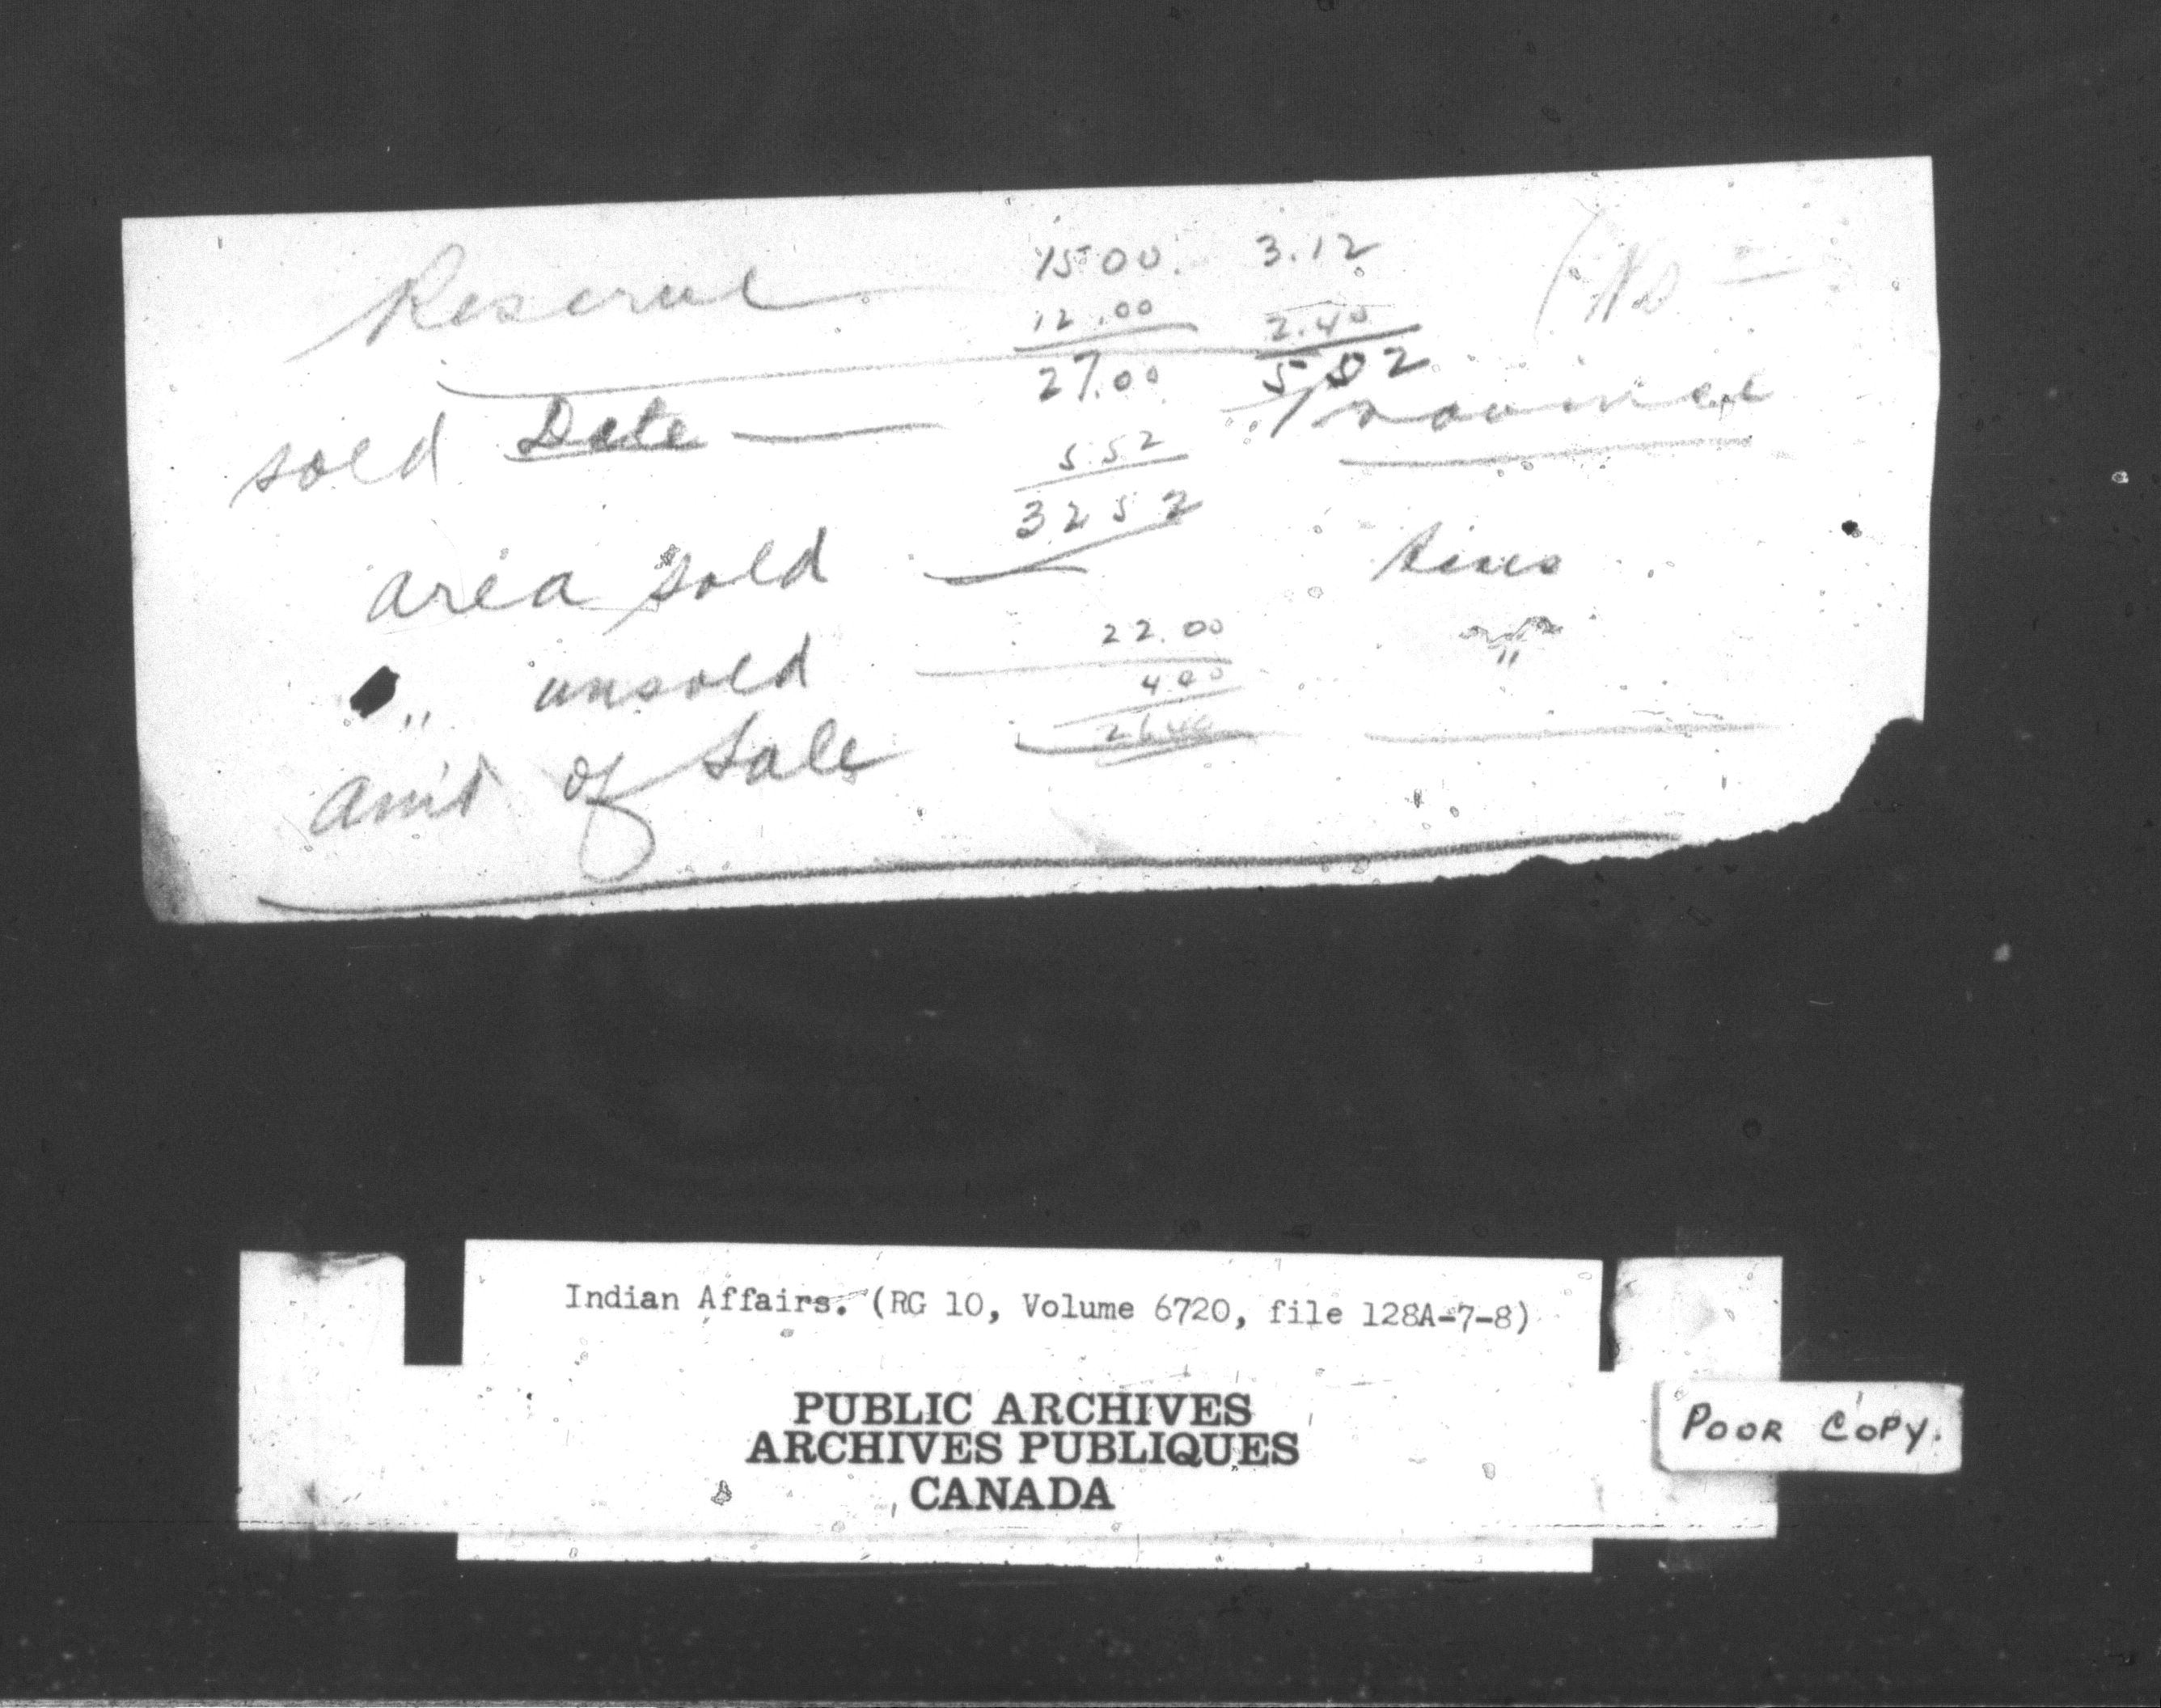 Reserve 15.00 3.12 (No —
12.00 2.40
27.00 5.52
sold Date — Province
5.52
32 52
area sold —
22.00
" unsold — "
4.00
26.00
Am't of Sale
Indian Affairs. (RG 10, Volume 6720, file 128A-7-8)
PUBLIC ARCHIVES
ARCHIVES PUBLIQUES
CANADA
POOR COPY.